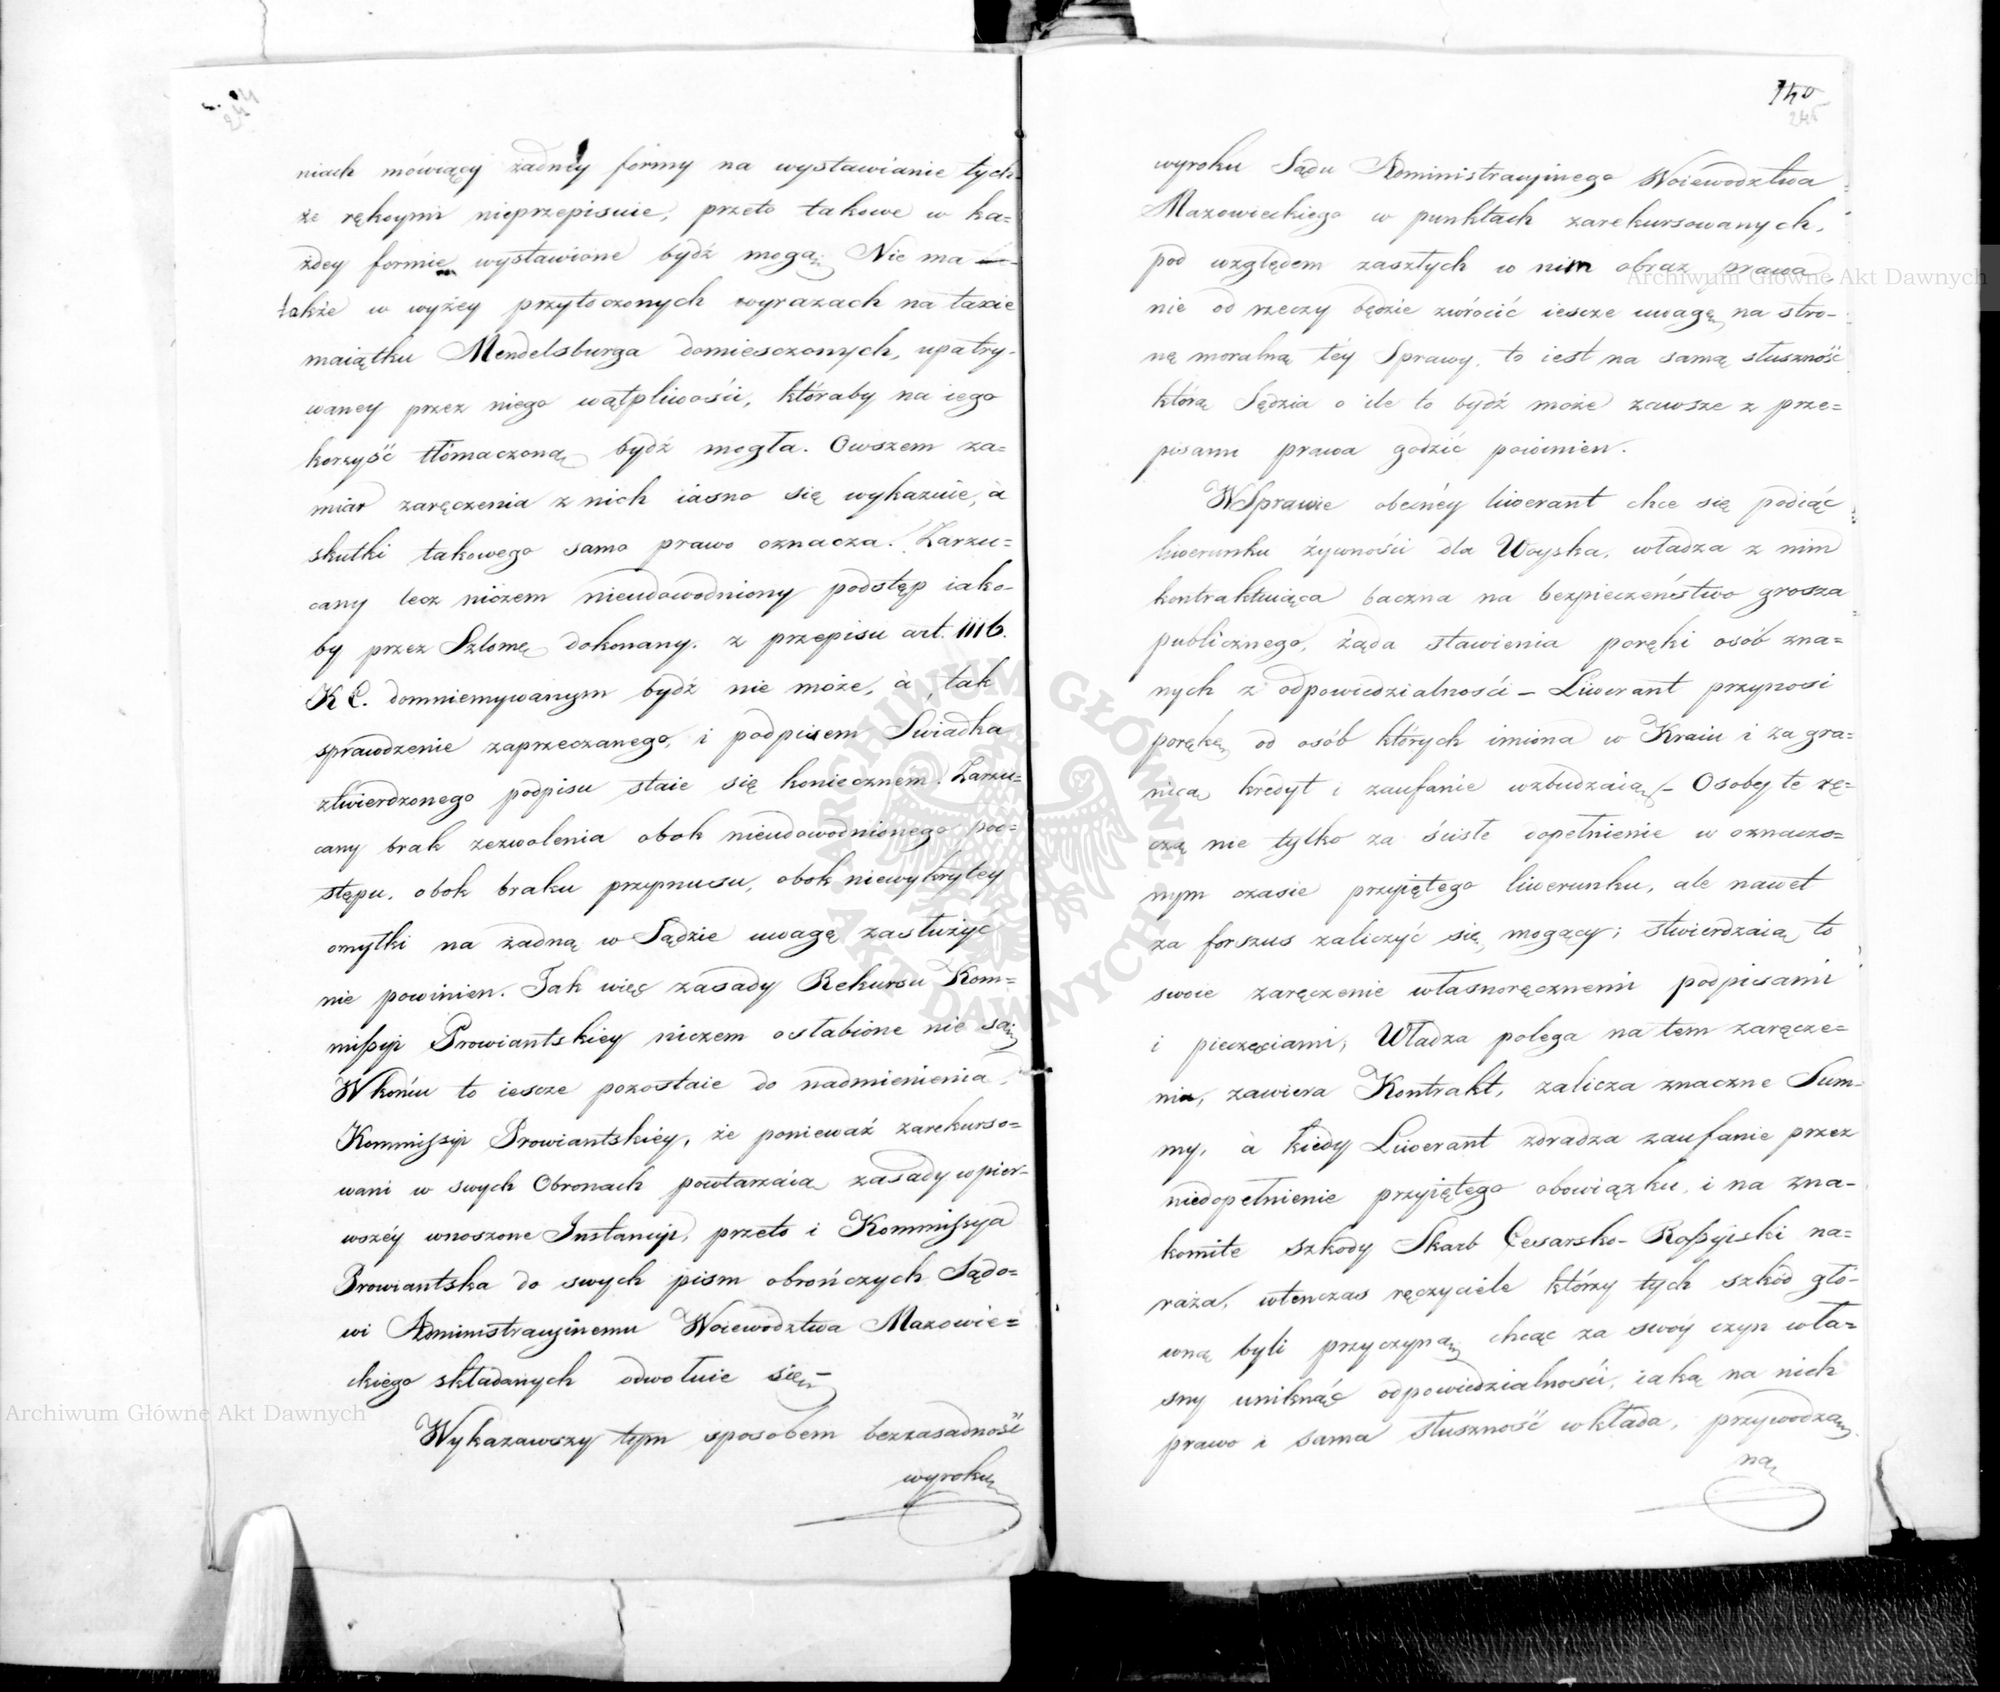 niach mówiący żadnéy formy na wystawianie tych-
że rękoymi nieprzepisuie, przeto takowe w ka=
żdey formie wystawione bydź mogą; Nie ma
także w wyżey przytoczonych wyrazach na taxie
maiątku Mendelsburga domiesczonych, upatry-
waney przez niego wątpliwości, któraby na iego
korzyść tłómaczoną bydź mogła. Owszem za=
miar zaręczenia z nich iasno się wykazuie, à
skutki takowego samo prawo oznacza. Zarzu=
cany lecz niczem nieudowodniony podstęp iako-
by przez Szlomę dokonany. z przepisu art. 1116.
K C. domniemywanym bydź nie może, à tak
sprawdzenie zaprzeczanego, i podpisem Świadka
ztwierdzonego podpisu staie się koniecznem. Zarzu=
cany brak zezwolenia obok nieudowodnionego pod=
stępu, obok braku przymusu, obok niewykrytey
omyłki na żadną w Sądzie uwagę zasłużyć
nie powinien. Tak więc zasady Rekursu Kom=
missyi Prowiantskiey niczem osłabione nie są;
W końcu to iescze pozostaie do nadmienienia
Kommissyi Prowiantskiéy, że ponieważ zarekurso=
wani w swych Obronach powtarzaią zasady w pier-
wszéy wnoszone Instancyi, przeto i Kommissya
Prowiantska do swych pism obrończych Sądo=
wi Administracyinemu Woiewództwa Mazowie=
ckiego składanych odwołuie się,–
Wykazawszy tym sposobem bezzasadność
wyroku
140
245
wyroku Sądu Administracyinego Woiewództwa
Mazowieckiego w punktach zarekursowanych,
pod względem zaszłych w nim obraz prawa
nie od rzeczy będzie zwrócić iescze uwagę na stro-
nę moralną téy Sprawy, to iest na samą słuszność
którą Sędzia o ile to bydź może zawsze z prze=
pisami prawa godzić powinien.
W Sprawie obecnéy liwerant chce się podiąć
liwerunku żywności dla Woyska, władza z nim
kontraktuiąca baczna na bezpieczeństwo grosza
publicznego, żąda stawienia poręki osób zna=
nych z odpowiedzialności – Liwerant przynosi
porękę od osób których imiona w Kraiu i za gra=
nicą kredyt i zaufanie wzbudzaią,– Osoby te rę=
czą nie tylko za ścisłe dopełnienie w oznaczo=
nym czasie przyiętego liwerunku, ale nawet
za forszus zaliczyć się mogący; stwierdzaią to
swoie zaręczenie własnoręcznemi podpisami
i pieczęciami, Władza polega na tem zaręcze=
niu, zawiera Kontrakt, zalicza znaczne Sum-
my, à kiedy Liwerant zdradza zaufanie przez
niedopełnienie przyiętego obowiązku, i na zna-
komite szkody Skarb Cesarsko-Rossyiski na=
raża, wtenczas ręczyciele którzy tych szkód głó-
wną byli przyczyną, chcąc za swóy czyn wła=
sny uniknąć odpowiedzialności, iaką na nich
prawo i sama słuszność wkłada, przywodzą
na
ARCHIWUM GŁÓWNE
AKT DAWNYCH
Archiwum Główne Akt Dawnych
Archiwum Główne Akt Dawnych